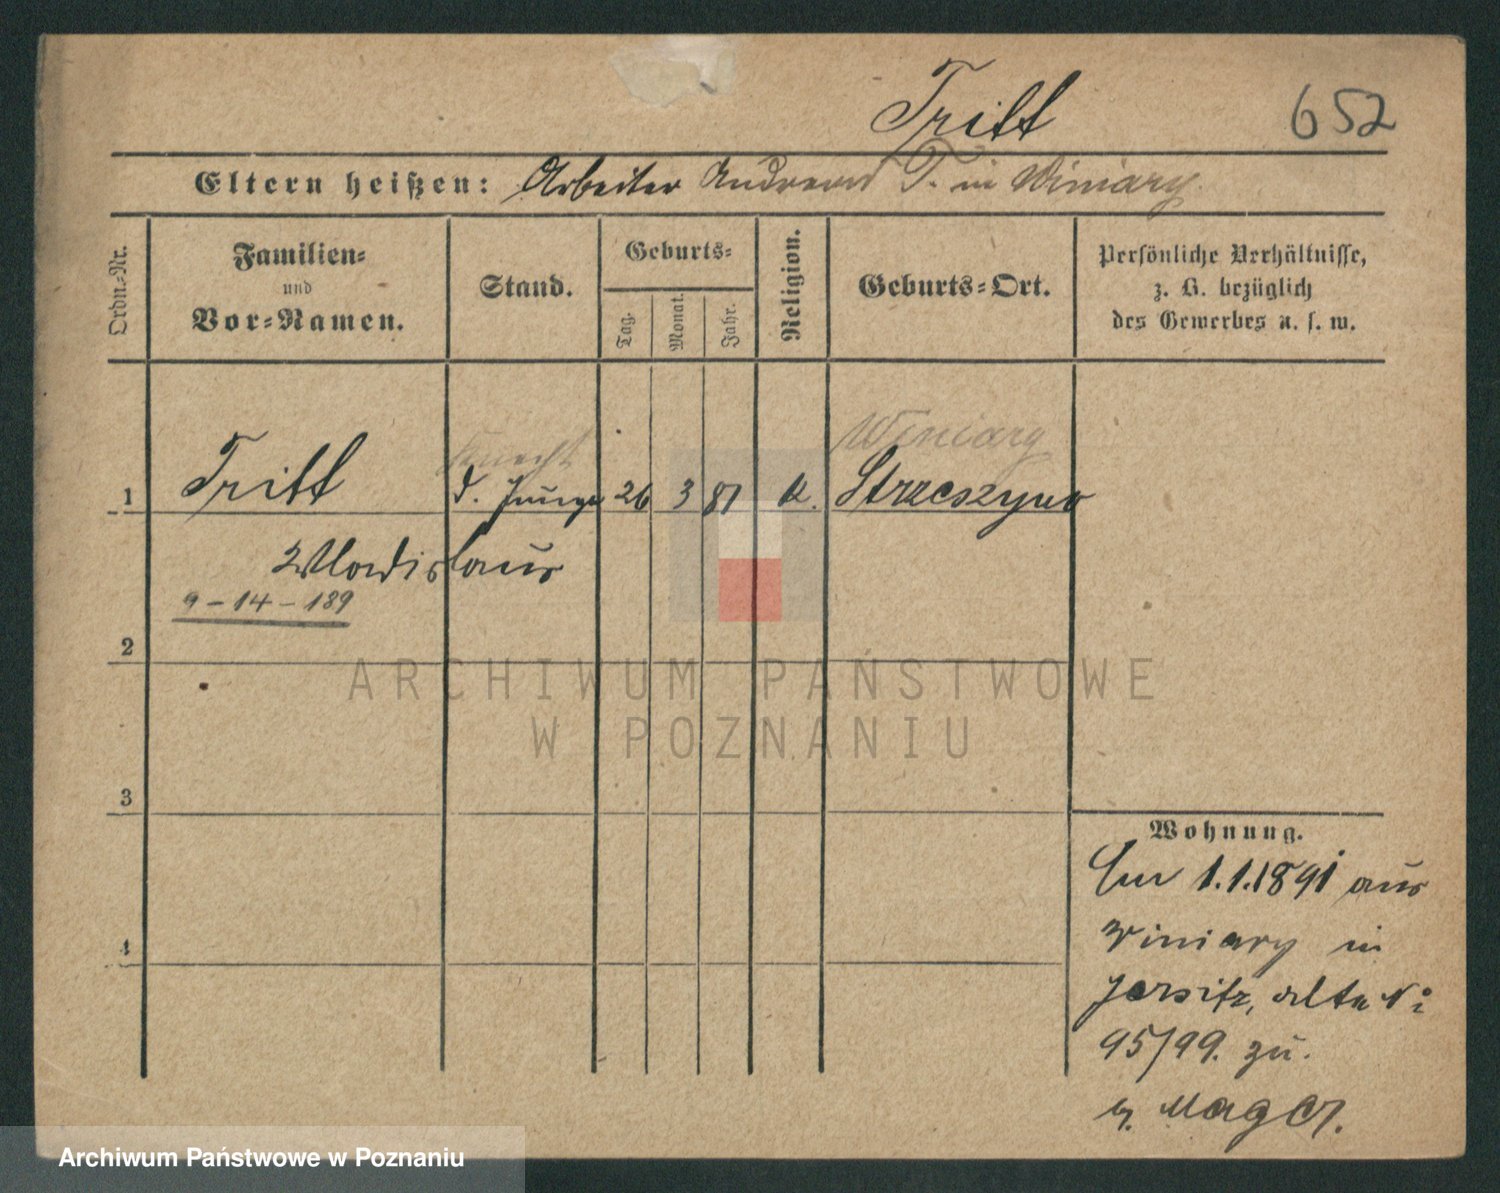 Tritt 652
Eltern heißen: Arbeiter Andreas T. in Winiary.
Ordn.-Nr.
Familien-
und
Vor-Namen.
Stand.
Geburts-
Tag.
Monat.
Jahr.
Religion.
Geburts-Ort.
Persönliche Verhältnisse,
z. B. bezüglich
des Gewerbes u. s. w.
Winiary
Knecht
1 Tritt d. Junge 26 3 81 k. Strzeszyno
Wladislaus
9-14-189
2
ARCHIWUM PAŃSTWOWE
W POZNANIU
3
Wohnung.
Am 1.1.1891 aus
Winiary in
Jersitz, alte N:
95/99. zu.
b. Mager.
4
Archiwum Państwowe w Poznaniu